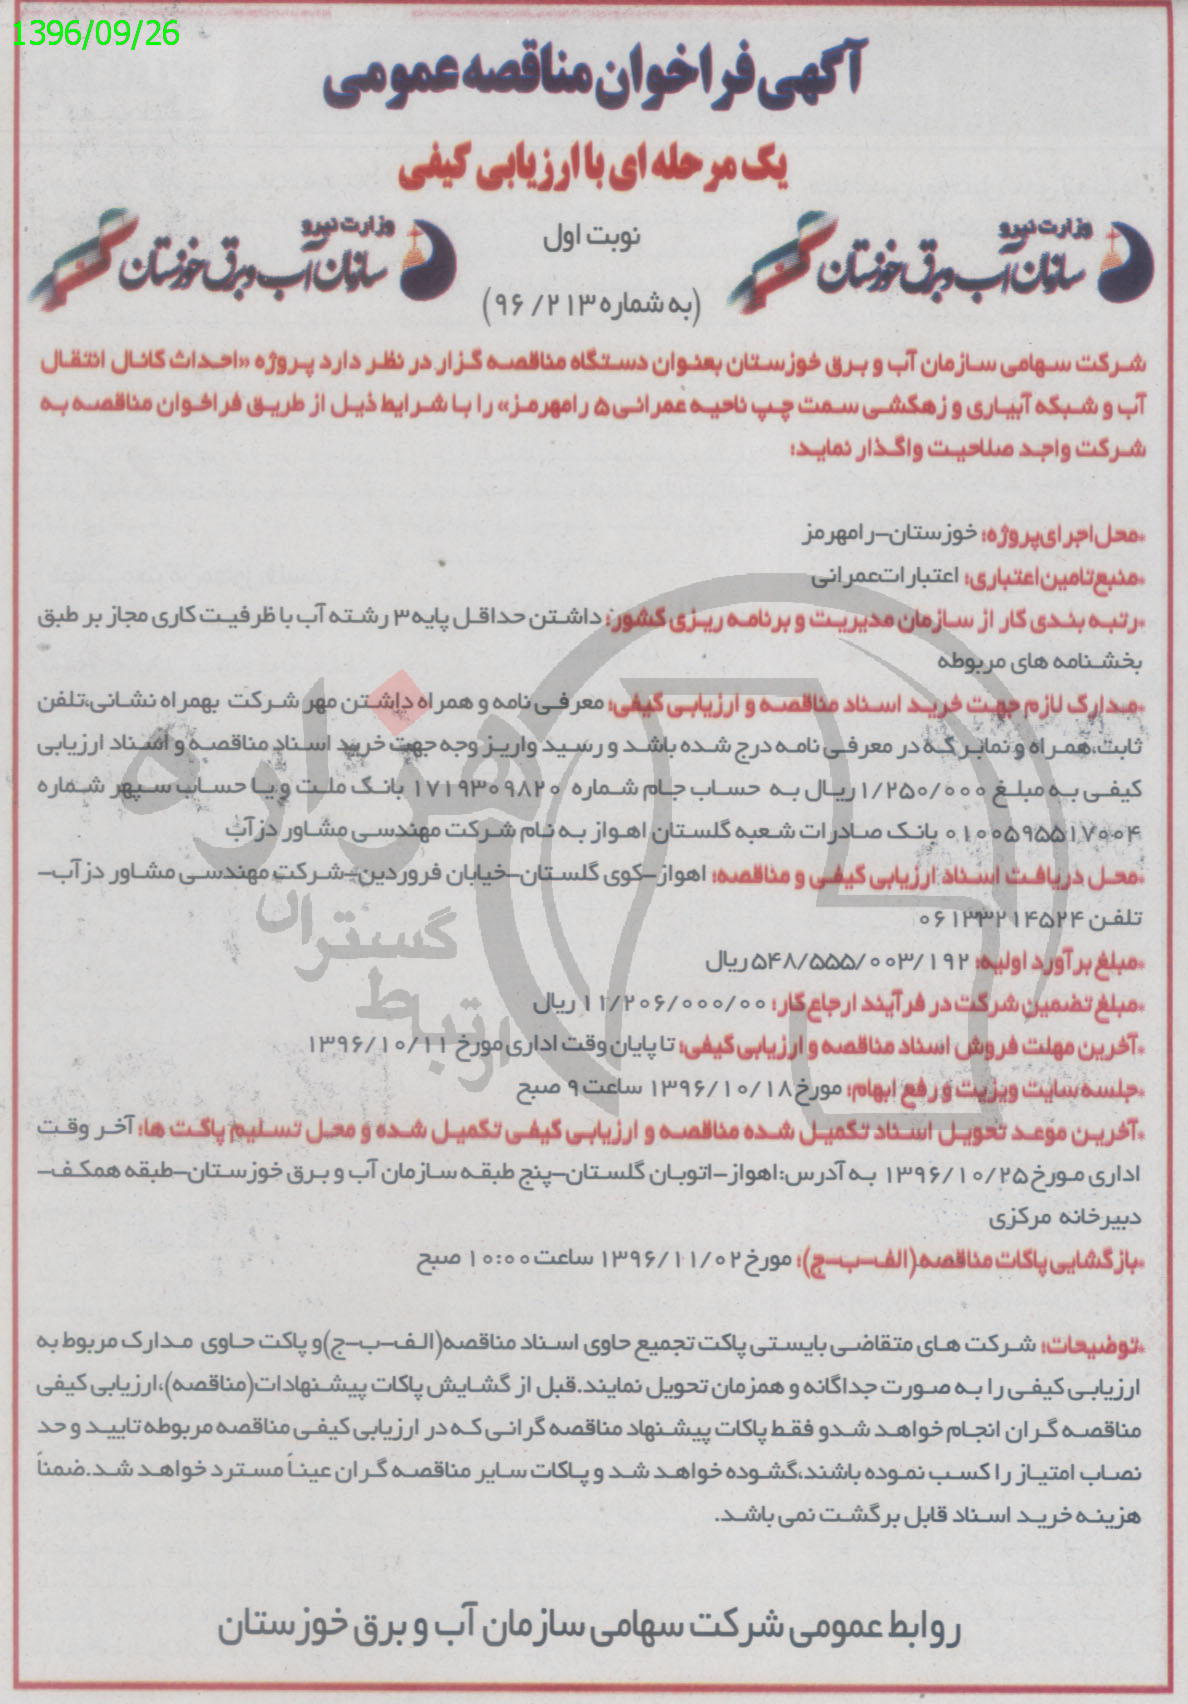 1396/09/26
آگهی فراخوان مناقصه عمومی
یک مرحله ای با ارزیابی کیفی
نوبت اول
وزارت نیرو
سازمان آب و برق خوزستان
وزارت نیرو
سازمان آب و برق خوزستان
(به شماره ۲۱۳/ ۹۶)
شرکت سهامی سازمان آب و برق خوزستان بعنوان دستگاه مناقصه گزار در نظر دارد پروژه «احداث کانال انتقال
آب و شبکه آبیاری و زهکشی سمت چپ ناحیه عمرانی۵ رامهرمز» را با شرایط ذیل از طریق فراخوان مناقصه به
شرکت واجد صلاحیت واگذار نماید:
*محل اجرای پروژه: خوزستان-رامهرمز
*منبع تامین اعتباری: اعتبارات عمرانی
*رتبه بندی کار از سازمان مدیریت و برنامه ریزی کشور: داشتن حداقل پایه۳ رشته آب با ظرفیت کاری مجاز بر طبق
بخشنامه های مربوطه
*مدارک لازم جهت خرید اسناد مناقصه و ارزیابی کیفی: معرفی نامه و همراه داشتن مهر شرکت بهمراه نشانی،تلفن
ثابت،همراه و نمابر که در معرفی نامه درج شده باشد و رسید واریز وجه جهت خرید اسناد مناقصه و اسناد ارزیابی
کیفی به مبلغ ۱/۲۵۰/۰۰۰ریال به حساب جام شماره ۱۷۱۹۳۰۹۸۲۰ بانک ملت و یا حساب سپهر شماره
۰۱۰۰۵۹۵۵۱۷۰۰۴ بانک صادرات شعبه گلستان اهواز به نام شرکت مهندسی مشاور دزآب
*محل دریافت اسناد ارزیابی کیفی و مناقصه: اهواز-کوی گلستان-خیابان فروردین-شرکت مهندسی مشاور دزآب-
تلفن ۰۶۱۳۳۲۱۴۵۲۴
*مبلغ برآورد اولیه: ۵۴۸/۵۵۵/۰۰۳/۱۹۲ریال
*مبلغ تضمین شرکت در فرآیند ارجاع کار: ۱۱/۲۰۶/۰۰۰/۰۰ ریال
*آخرین مهلت فروش اسناد مناقصه و ارزیابی کیفی: تا پایان وقت اداری مورخ ۱۳۹۶/۱۰/۱۱
*جلسه سایت ویزیت و رفع ابهام: مورخ ۱۳۹۶/۱۰/۱۸ ساعت ۹ صبح
*آخرین موعد تحویل اسناد تکمیل شده مناقصه و ارزیابی کیفی تکمیل شده و محل تسلیم پاکت ها: آخر وقت
اداری مورخ ۱۳۹۶/۱۰/۲۵ به آدرس:اهواز-اتوبان گلستان-پنج طبقه سازمان آب و برق خوزستان-طبقه همکف-
دبیرخانه مرکزی
*بازگشایی پاکات مناقصه(الف-ب-ج): مورخ ۱۳۹۶/۱۱/۰۲ ساعت ۱۰:۰۰ صبح
*توضیحات: شرکت های متقاضی بایستی پاکت تجمیع حاوی اسناد مناقصه(الف-ب-ج)و پاکت حاوی مدارک مربوط به
ارزیابی کیفی را به صورت جداگانه و همزمان تحویل نمایند.قبل از گشایش پاکات پیشنهادات(مناقصه)،ارزیابی کیفی
مناقصه گران انجام خواهد شدو فقط پاکات پیشنهاد مناقصه گرانی که در ارزیابی کیفی مناقصه مربوطه تایید و حد
نصاب امتیاز را کسب نموده باشند،گشوده خواهد شد و پاکات سایر مناقصه گران عیناً مسترد خواهد شد.ضمناً
هزینه خرید اسناد قابل برگشت نمی باشد.
روابط عمومی شرکت سهامی سازمان آب و برق خوزستان
هزاره
گستران
ارتباط